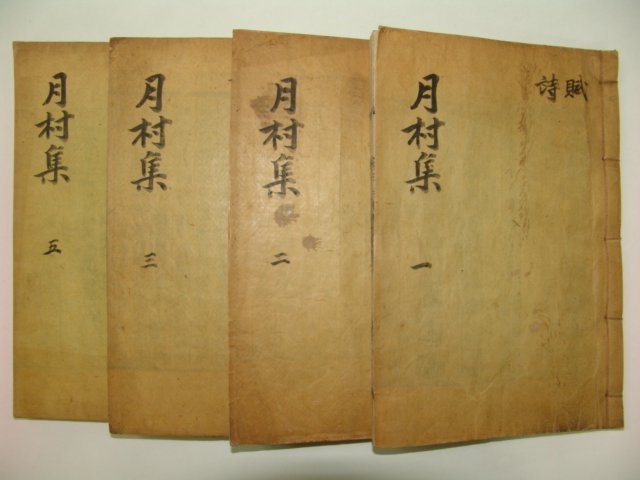 賦詩
月村集
一
月村集
二
月村集
三
月村集
五